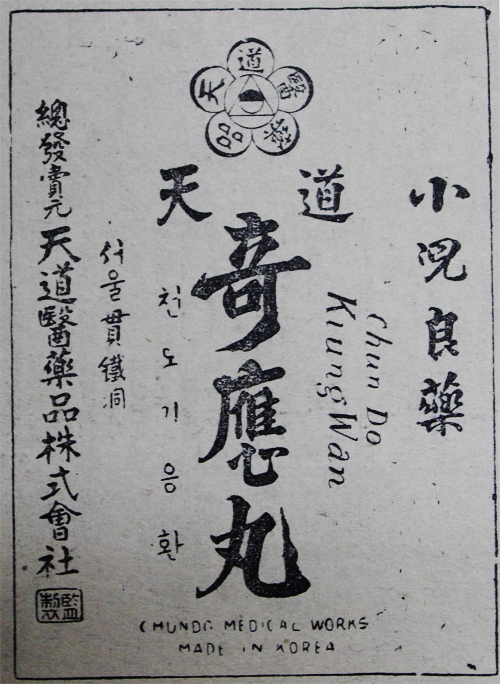 天道醫藥品
小児良藥
天道
奇應丸
Chun Do
Kiung Wan
천도기응환
서울貫鐵洞
總發賣元 天道醫藥品株式會社
監製
CHUNDO MEDICAL WORKS
MADE IN KOREA